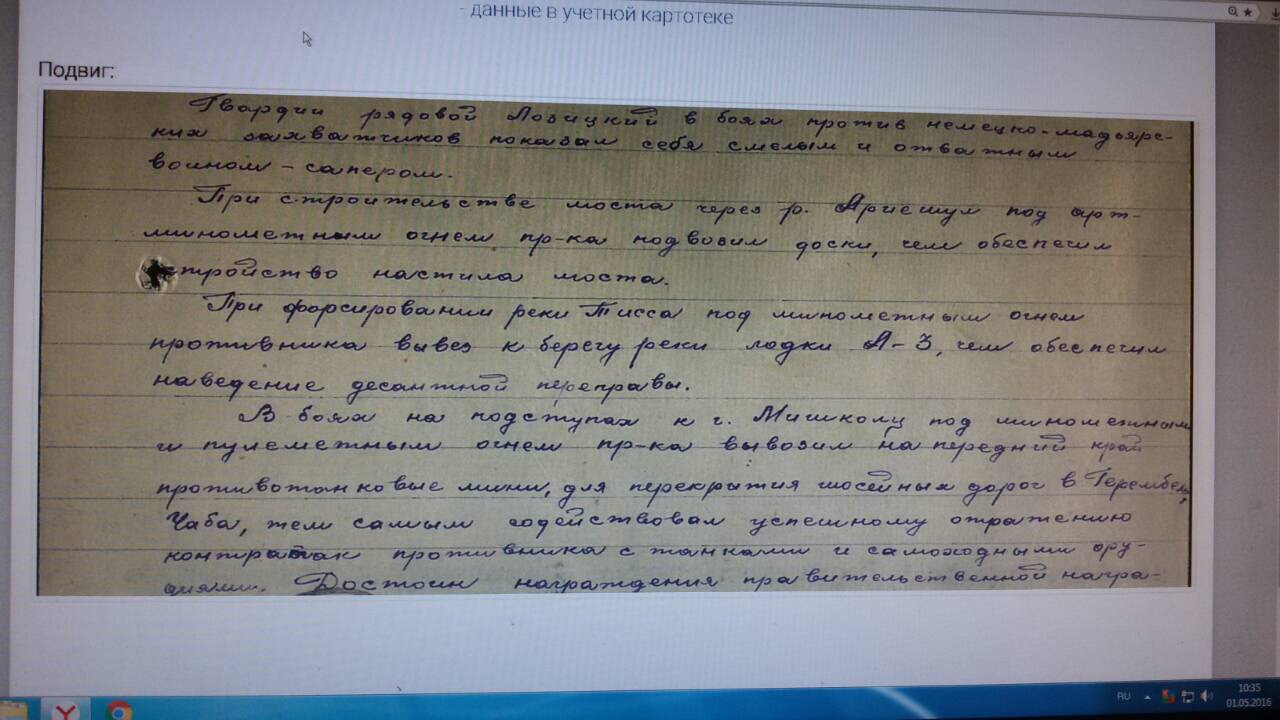 - данные в учетной картотеке
Подвиг:
Гвардии рядовой Лозицкий в боях против немецко-мадьярс-
ких захватчиков показал себя смелым и отважным
воином – сапером.
При строительстве моста через р. Ариешул под арт-
минометным огнем пр-ка подвозил доски, чем обеспечил
стройство настила моста.
При форсировании реки Тисса под минометным огнем
противника вывез к берегу реки лодки А-3, чем обеспечил
наведение десантной переправы.
В боях на подступах к г. Мишкольц под минометным
и пулеметным огнем пр-ка вывозил на передний край
противотанковые мины, для перекрытия шосейных дорог в
Чаба, тем самым содействовал успешному отражению
контратак противника с танками и самоходными ору-
диями. Достоин награждения правительственной награ-
RU
10:35
01.05.2016